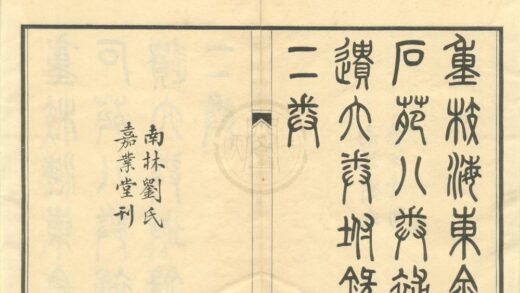 重校海東金
石苑八卷補
遺六卷附錄
二卷
南林劉氏
嘉業堂刊